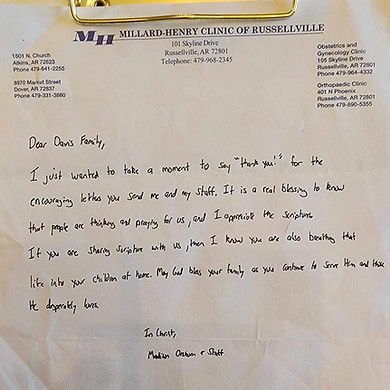 MH MILLARD-HENRY CLINIC OF RUSSELLVILLE
101 Skyline Drive
Russellville, AR 72801
Telephone: 479-968-2345
1601 N. Church
Atkins, AR 72823
Phone 479-641-2255
8970 Market Street
Dover, AR 72837
Phone 479-331-3880
Obstetrics and
Gynecology Clinic
105 Skyline Drive
Russellville, AR 72801
Phone 479-964-4332
Orthopaedic Clinic
401 N Phoenix
Russellville, AR 72801
Phone 479-890-5355
Dear Davis Family,
I just wanted to take a moment to say "thank you!" for the
encouraging letters you send me and my staff. It is a real blessing to know
that people are thinking and praying for us, and I appreciate the scripture.
If you are sharing scripture with us, then I know you are also breathing that
life into your children at home. May God bless your family as you continue to serve Him and those
He desperately loves.
In Christ,
+ Staff